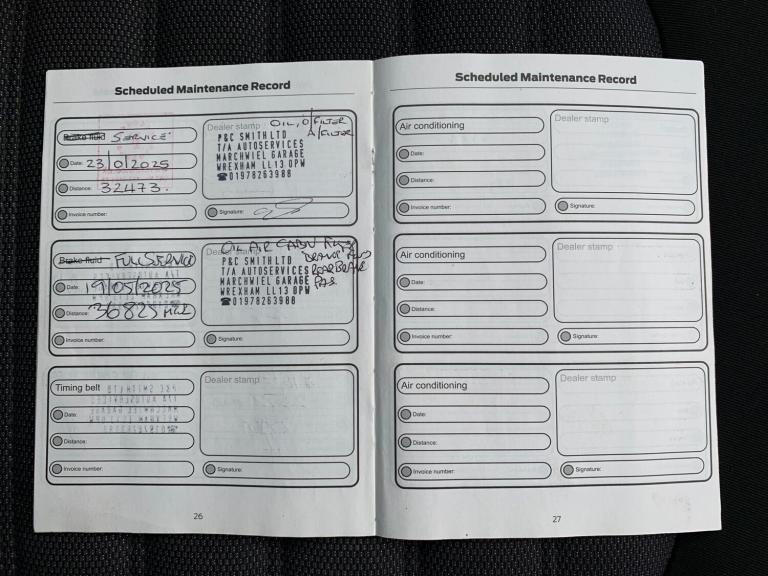 Scheduled Maintenance Record
Brake fluid SERVICE
Date: 23/01/2025
Distance: 32473.
Invoice number:
Dealer stamp OIL, O/FILTER
A/FILTER
P&C SMITH LTD
T/A AUTOSERVICES
MARCHWIEL GARAGE
WREXHAM LL13 0PW
☎01978263988
Signature:
Brake fluid FULL SERVICE
Date: 19/05/2025
Distance: 36825
Invoice number:
Dealer stamp OIL AIR CABIN
P&C SMITH LTD
T/A AUTOSERVICES REAR BRAKE
MARCHWIEL GARAGE
WREXHAM LL13 0PW
☎01978263988
Signature:
Timing belt
Date:
Distance:
Invoice number:
Dealer stamp
Signature:
26
Scheduled Maintenance Record
Air conditioning
Date:
Distance:
Invoice number:
Dealer stamp
Signature:
Air conditioning
Date:
Distance:
Invoice number:
Dealer stamp
Signature:
Air conditioning
Date:
Distance:
Invoice number:
Dealer stamp
Signature:
27